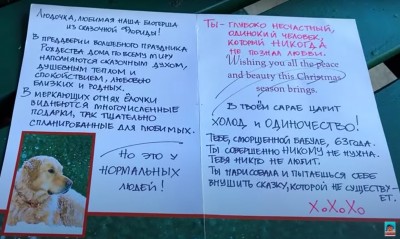 Людочка, любимая наша блогерша
из сказочной Флориды!
В преддверии волшебного праздника
Рождества дома по всему миру
наполняются сказочным духом,
душевным теплом и
спокойствием, любовью
близких и родных.
В мерхающих отнях ёлочки
виднеются многочисленные
подарки, так тщательно
спланированные для любимых.
Но это у
нормальных
людей!
Ты - глубоко несчастный,
одинокий человек,
который никогда
не познал любви.
Wishing you all the peace
and beauty this Christmas
season brings.
В твоём сараб царит
холод и одиночество!
Тебе, сморщенной бабуле, 63 года.
Ты совершенно никому не нужна.
Тебя никто не любит.
Ты нарисовала и пытаешься себе
внушить сказку, которой не существу-
ет.
ХоХоХо